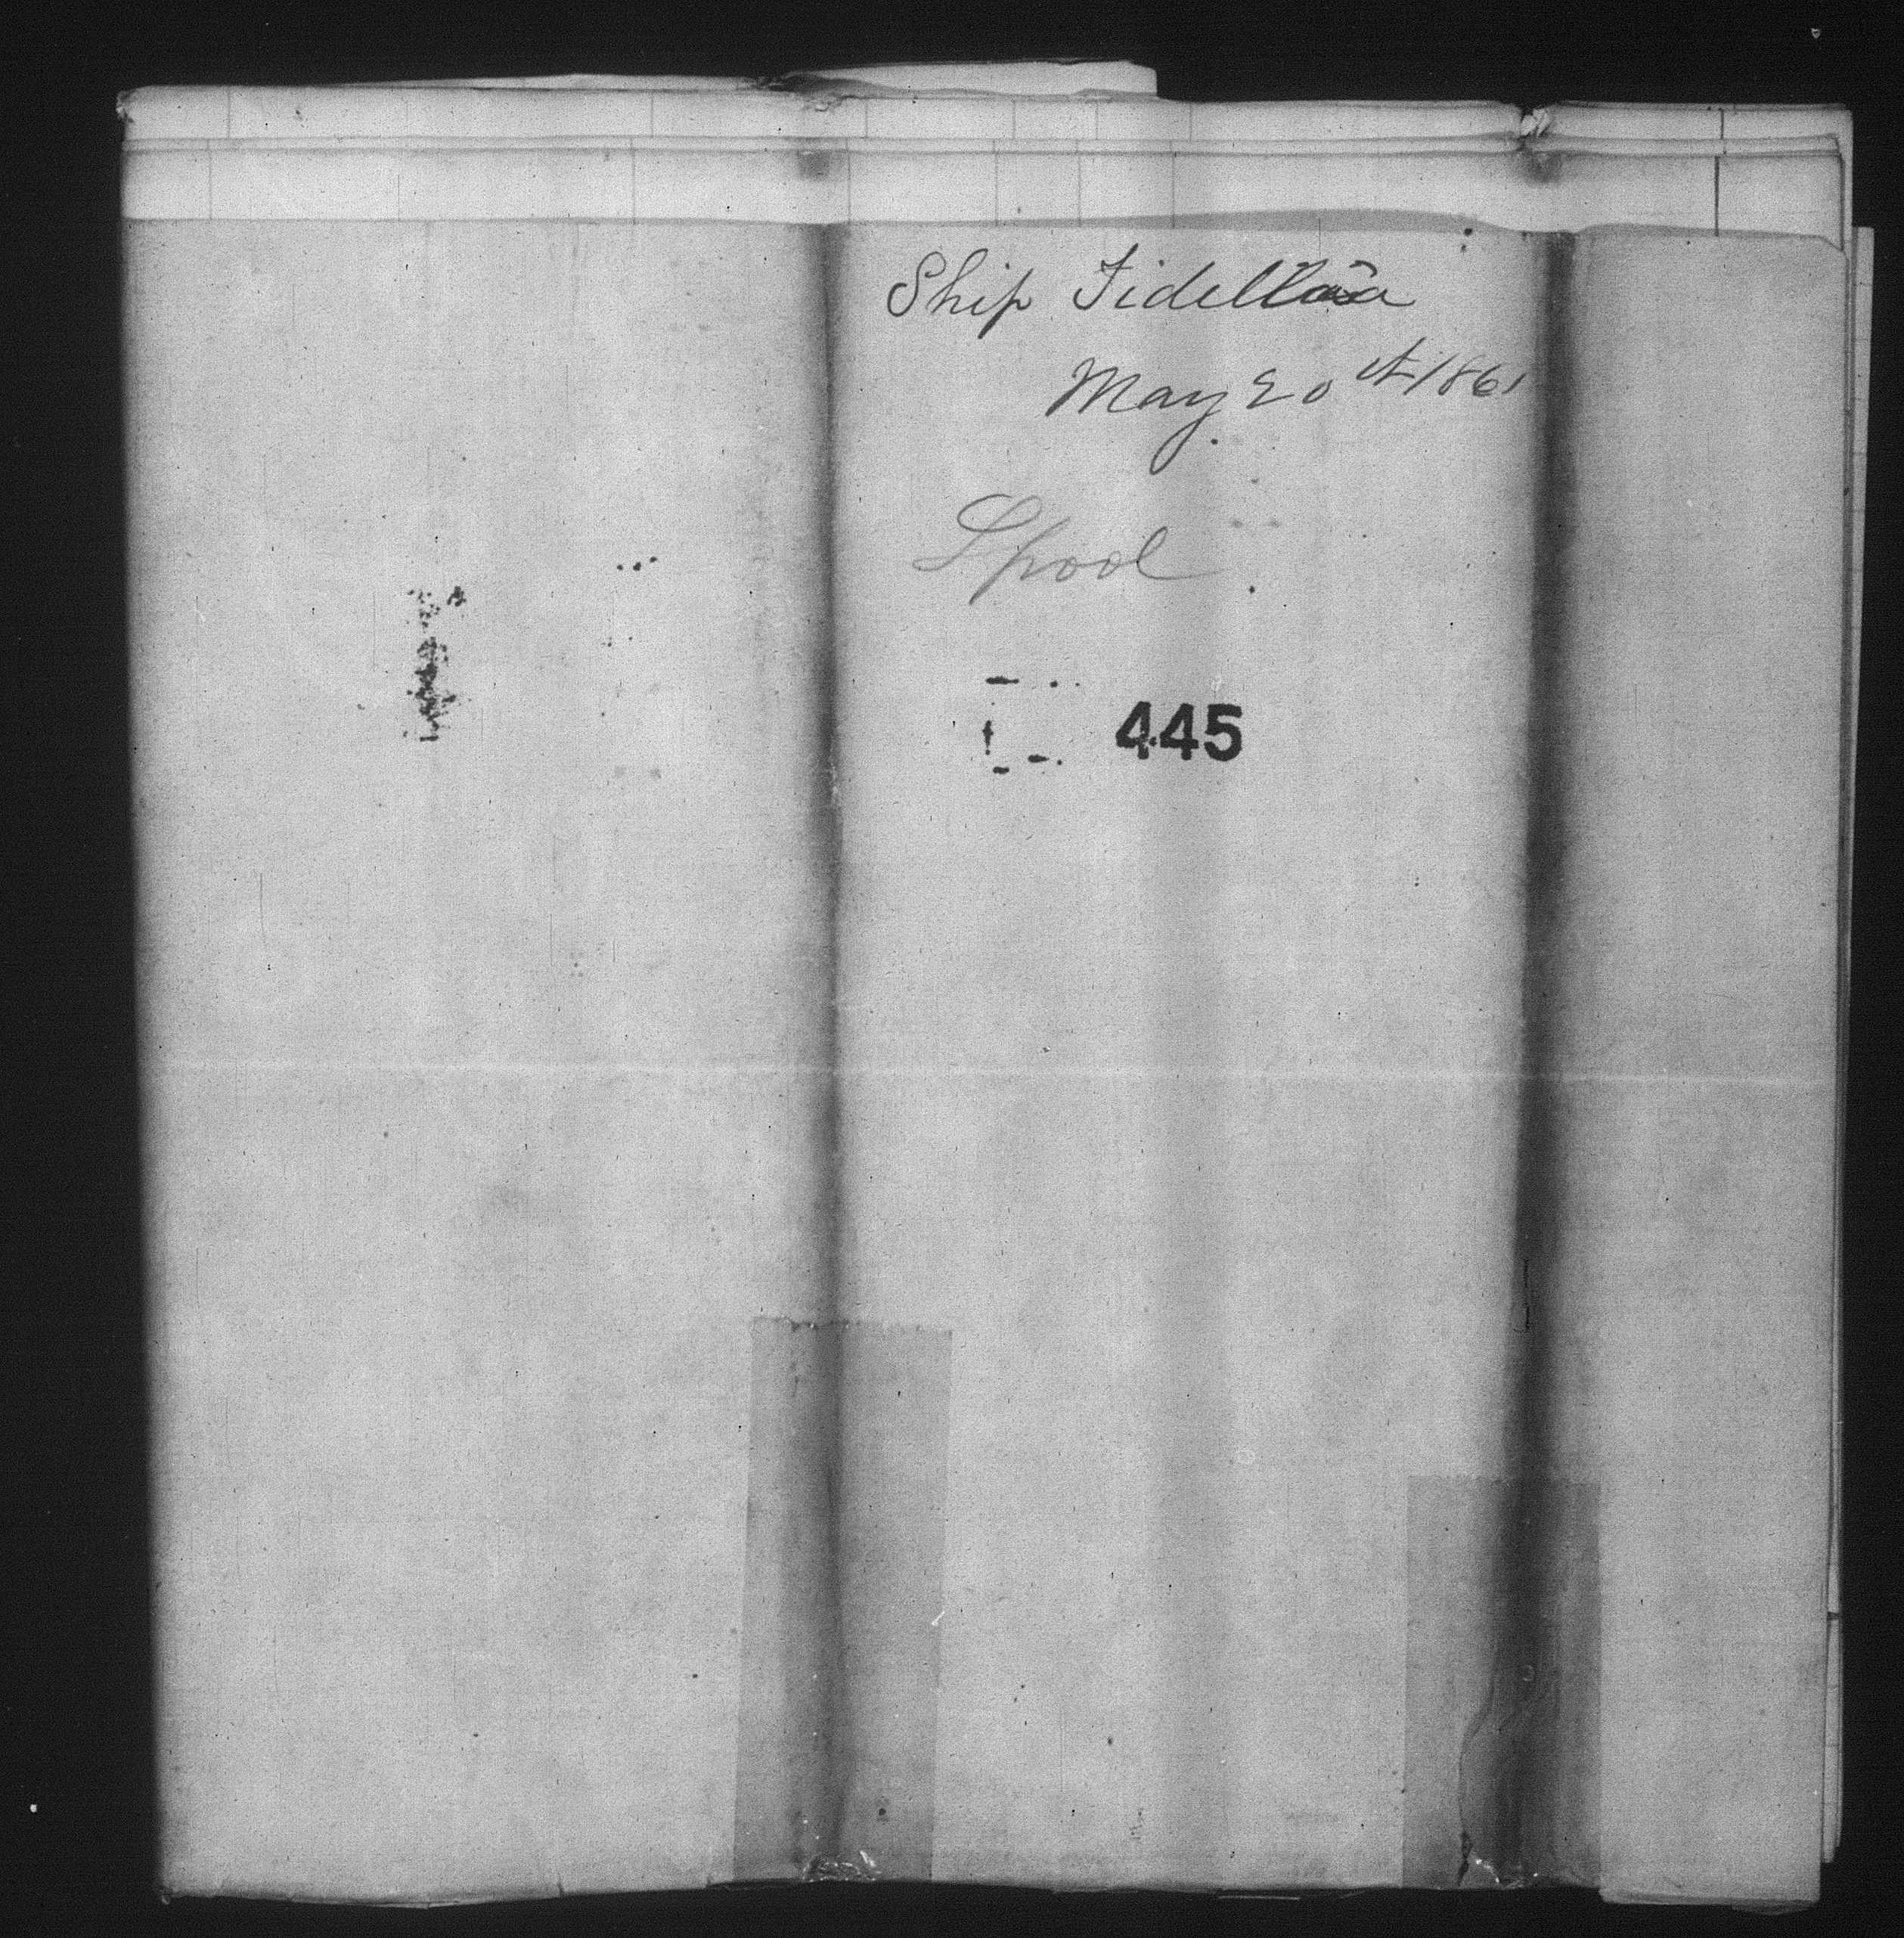 Ship Fidellia
May 20th 1861
Lpool
445